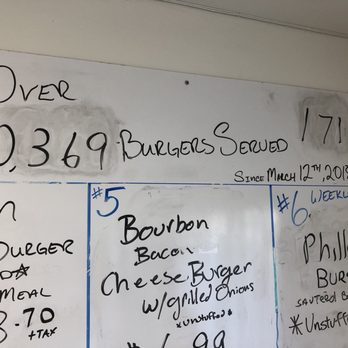 OVER
0,369 BURGERS SERVED 171
SINCE MARCH 12TH, 201
#5
Bourbon
Bacon
Cheese Burger
w/grilled Onions
*unstuffed*
.99
#6 WEEKL
Phill
BUR
SAUTEED
*Unstuff
BURGER
MEAL
.70
+TAX